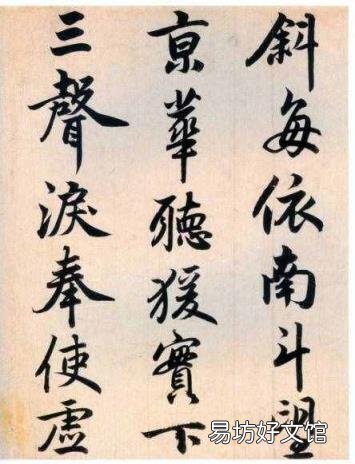 斜每依南斗望
京華聽猨實下
三聲淚奉使虛
易坊好文馆